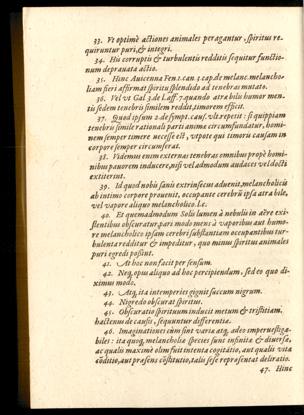 33. Vt optimè actiones animales peragantur, spiritus requiruntur puri, & integri.
34. His corruptis & turbulentis redditis sequitur functionum deprauata actio.
35. Hinc Auicenna Fen 1. can 3 cap. de melanc. melancholiam fieri affirmat spiritu splendido ad tenebras mutato.
36. Vel vt Gal 3. de l. aff. 7. quando atra bilis humor mentis sedem tenebris similem reddit, timorem efficit.
37. Quod ipsum 2. de sympt. caus. vlt. repetit: si quippiam tenebris simile rationali parti animæ circumfundatur, hominem semper timere necesse est, vtpote qui timoris causam in corpore semper circumferat.
38. Videmus enim externas tenebras omnibus propè hominibus pauorem inducere, nisi vel admodum audaces vel docti extiterint.
39. Id quod nobis sanis extrinsecus aduenit, melancholicis ab intimo corpore prauenit, occupante cerebrũ ipsa atra bile, vel vapore aliquo melancholico. l. c.
40. Et quemadmodum Solis lumen à nebulis in aëre existentibus obscuratur, pari modo mens à vaporibus aut humore melancholico ipsam cerebri substantiam occupantibus turbulenta redditur & impeditur, quo minus spiritus animales puri egredi possint.
41. At hoc non facit per sensum.
42. Neq, opus aliquo ad hoc percipiendum, sed eo quo diximus modo.
43. Atq, ita intemperies gignit succum nigrum.
44. Nigredo obscurat spiritus.
45. Obscuratio spirituum inducit metum & tristitiam, hactenus de causis, sequuntur differentia.
46. Imaginationes cùm sint varia atq, adeo imperuestigabiles: ita quoq, melancholiæ species sunt infinitæ & diuersæ, ac qualis maximè olim fuit intenta cogitatio, aut qualis vitæ cõditio, aut præsens cõstitutio, talis sese repræsentat deliratio.
47. Hinc